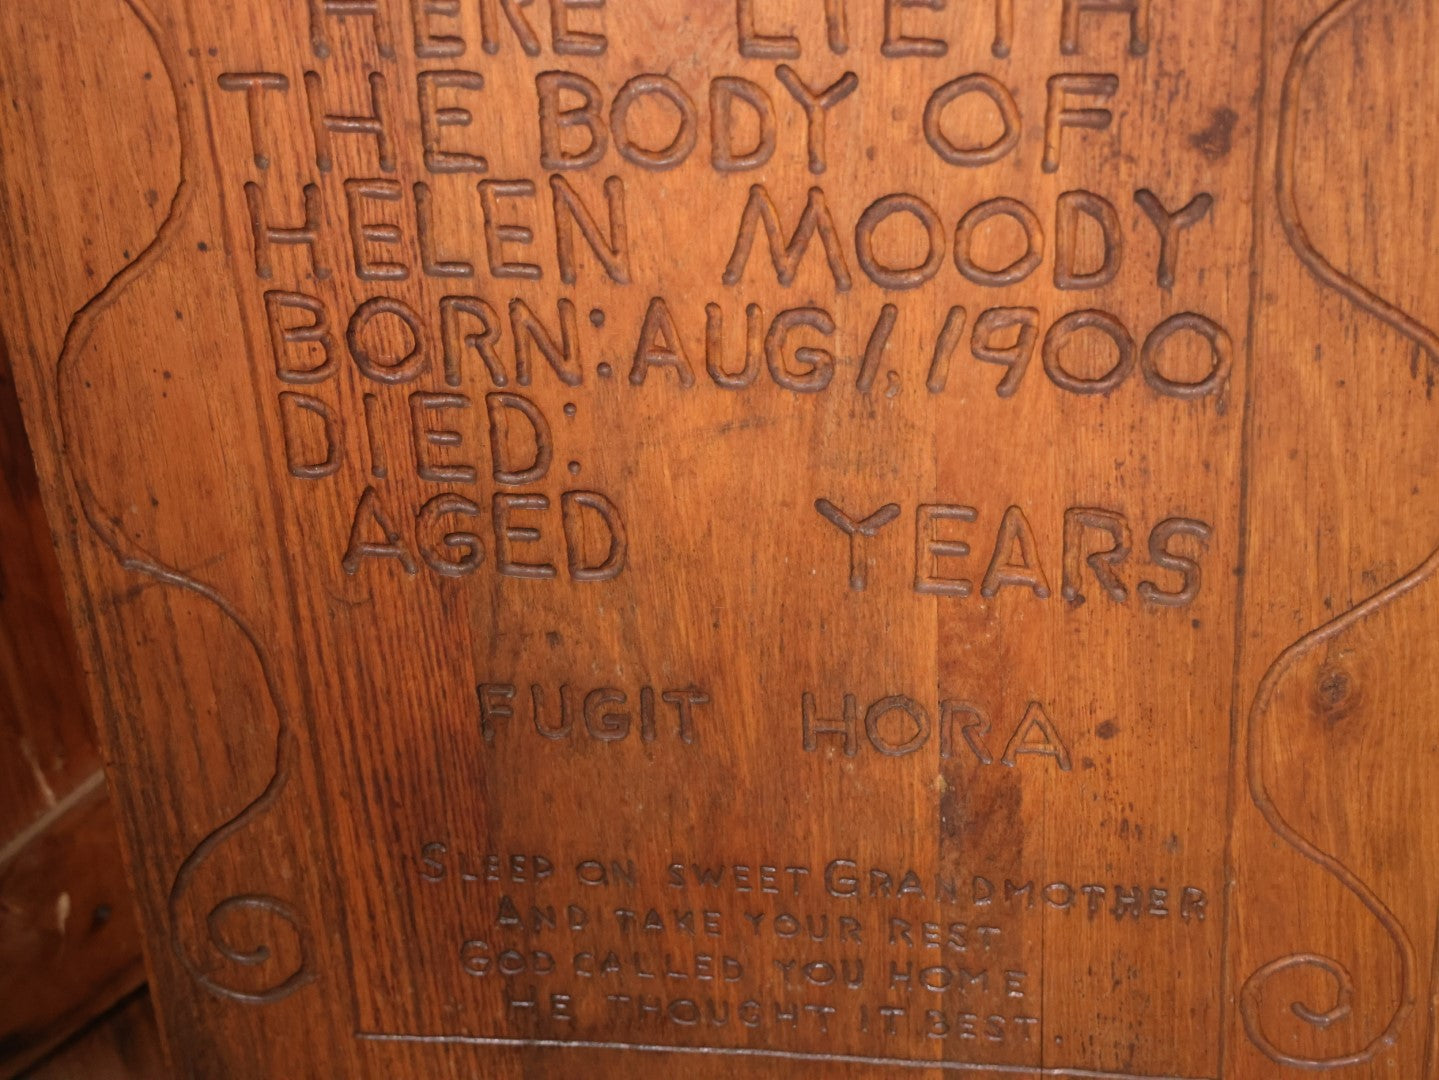 HERE LIETH
THE BODY OF
HELEN MOODY
BORN: AUG 1, 1900
DIED:
AGED YEARS
FUGIT HORA
SLEEP ON SWEET GRANDMOTHER
AND TAKE YOUR REST
GOD CALLED YOU HOME
HE THOUGHT IT BEST.